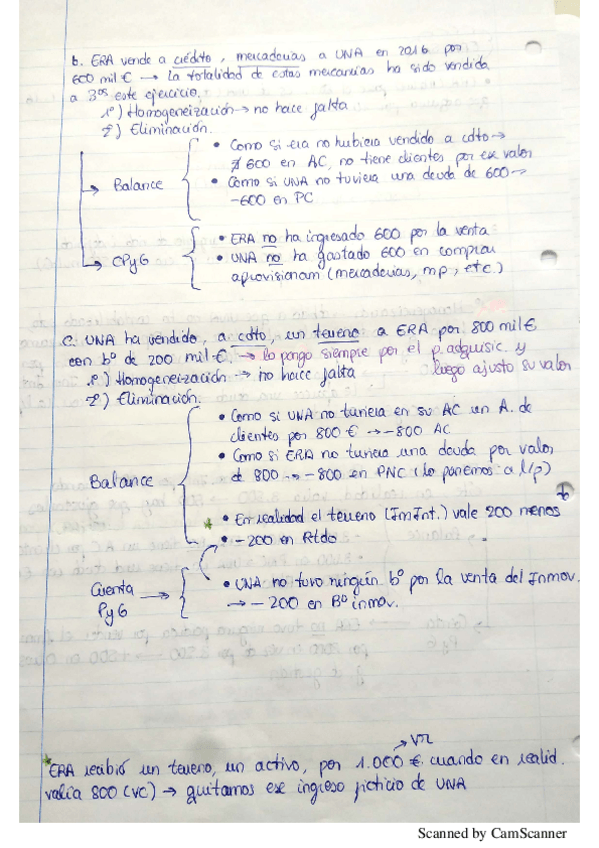 b. ERA vende a crédito, mercaderías a UNA en 2016 por
600 mil € → la totalidad de estas mercancías ha sido vendida
a 3os este ejercicio.
1º) Homogeneización → no hace falta
2º) Eliminación.
Balance
• Como si era no hubiera vendido a cdto →
600 en AC, no tiene clientes por ese valor
• Como si UNA no tuviera una deuda de 600 →
-600 en PC
CPyG
• ERA no ha ingresado 600 por la venta
• UNA no ha gastado 600 en comprar
aprovisionam (mercaderías, mp, etc.)
C. UNA ha vendido, a cdto, un terreno a ERA por 800 mil €
con bº de 200 mil €. → lo pongo siempre por el p. adquisic. y
luego ajusto su valor
1º) Homogeneización → no hace falta
2º) Eliminación.
Balance
• Como si UNA no tuviera en su AC un A. de
clientes por 800 € → -800 AC
• Como si ERA no tuviera una deuda por valor
de 800 → -800 en PNC (lo ponemos a l/p)
* • En realidad el terreno (Im Int.) vale 200 menos
• -200 en Rtdo
Cuenta PyG →
• UNA no tuvo ningún bº por la venta del Inmov.
→ -200 en Bº inmov.
→ VR
*ERA recibió un terreno, un activo, por 1.000 € cuando en realid.
valía 800 (VC) → quitamos ese ingreso ficticio de UNA
Scanned by CamScanner